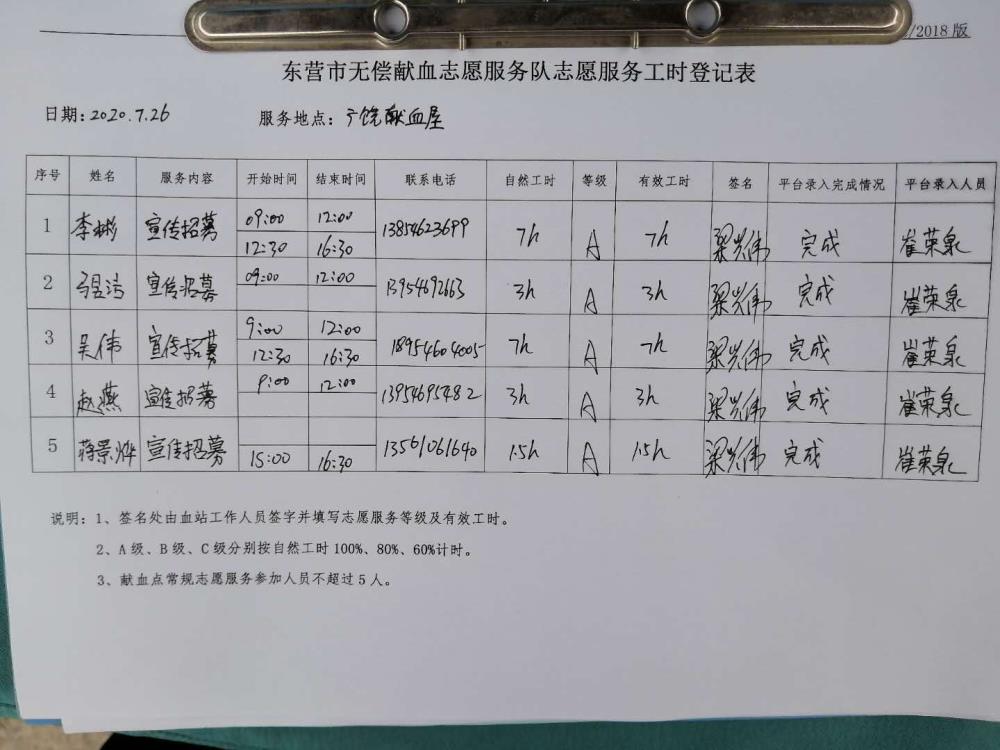 /2018 版
东营市无偿献血志愿服务队志愿服务工时登记表
日期:2020.7.26 服务地点:广饶献血屋
序号 姓名 服务内容 开始时间 结束时间 联系电话 自然工时 等级 有效工时 签名 平台录入完成情况 平台录入人员
1 李彬 宣传招募 09:00 12:00 13854623699 7h A 7h 梁兴伟 完成 崔荣泉
12:30 16:30
2 宣传招募 09:00 12:00 13954692663 3h A 3h 梁兴伟 完成 崔荣泉
3 吴伟 宣传招募 9:00 12:00 18954604005 7h A 7h 梁兴伟 完成 崔荣泉
12:30 16:30
4 赵燕 宣传招募 9:00 12:00 13954695482 3h A 3h 梁兴伟 完成 崔荣泉
5 蒋景烨 宣传招募 15:00 16:30 13561061640 1.5h A 1.5h 梁兴伟 完成 崔荣泉
说明:1、签名处由血站工作人员签字并填写志愿服务等级及有效工时。
2、A 级、B 级、C 级分别按自然工时 100%、80%、60%计时。
3、献血点常规志愿服务参加人员不超过 5 人。